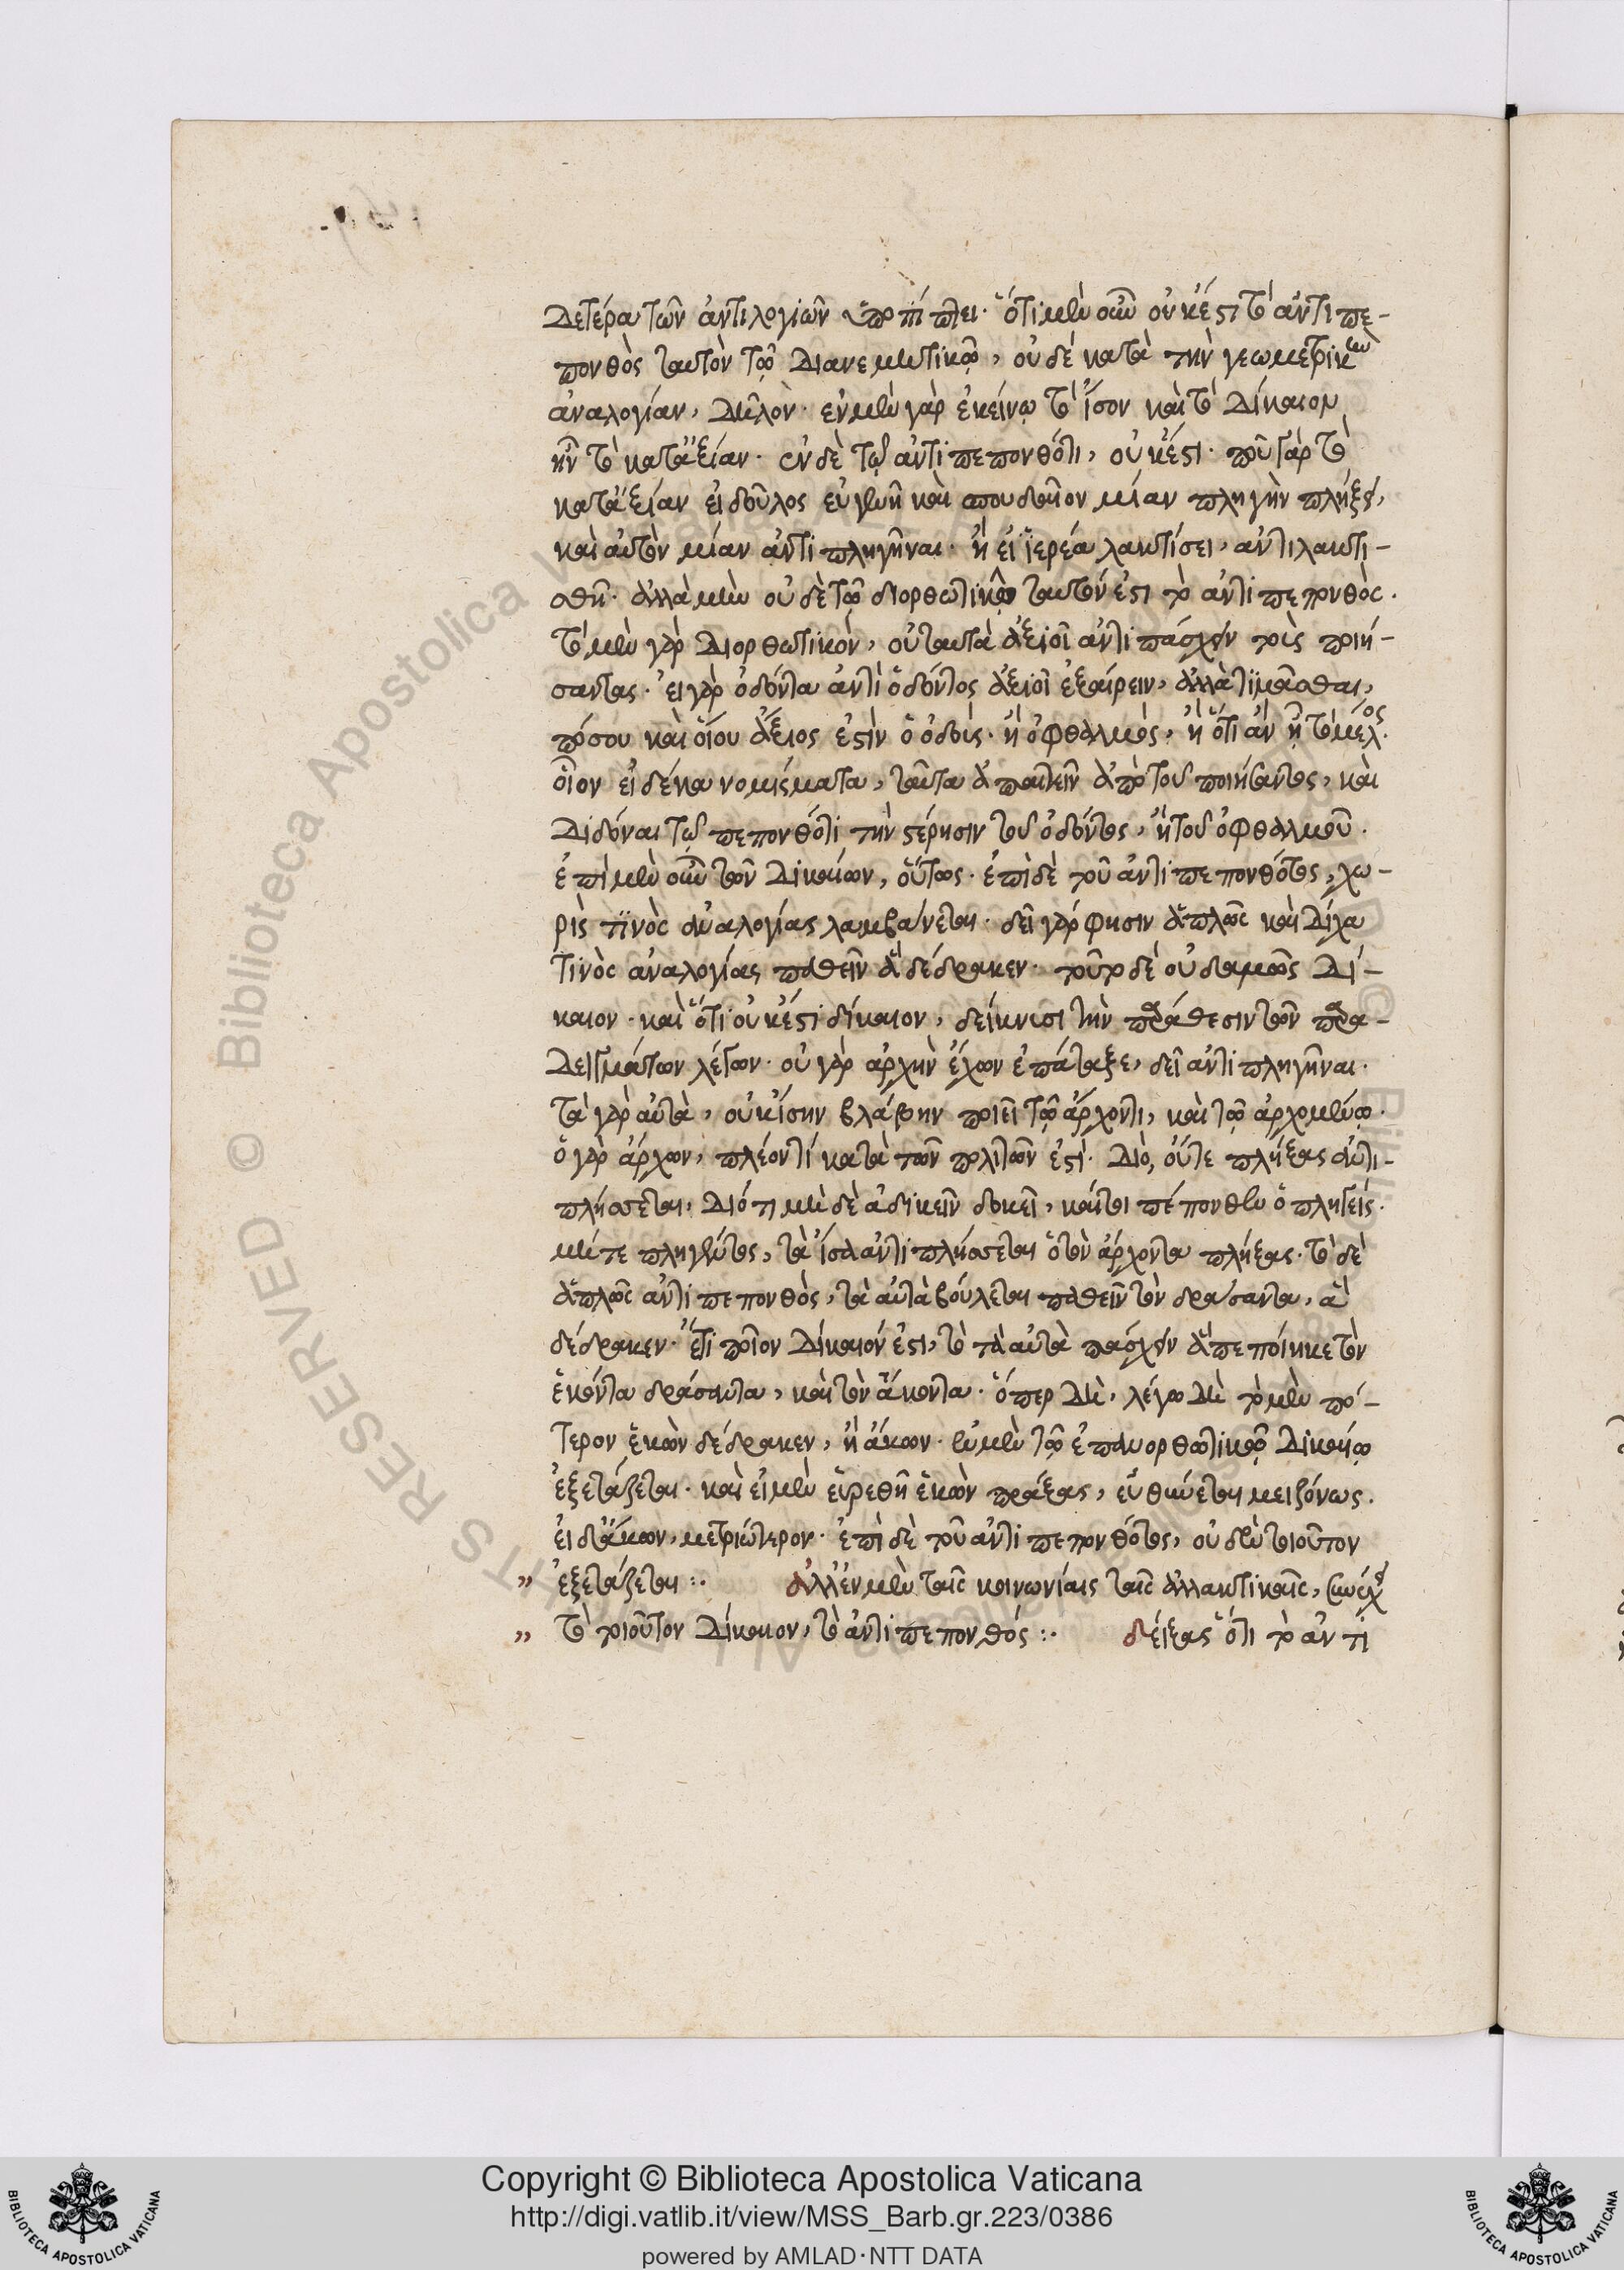 δετέρα τῶν ἀντιλογιῶν ὑποπίπτει· ὅτι μὲν οὖν οὐκ ἔστι τὸ ἀντιπε-
πονθὸς ταυτὸν τῷ διανεμητικῷ, οὐδὲ κατὰ τὴν γεωμετρικὴν
ἀναλογίαν, δῆλον· ἐν μὲν γὰρ ἐκείνῳ τὸ ἴσον καὶ τὸ δίκαιον
ἦν τὸ κατ' ἀξίαν· ἐν δὲ τῷ ἀντιπεπονθότι, οὐκ ἔστι· ποῦ γὰρ τὸ
κατ' ἀξίαν εἰ δοῦλος εὐγενῆ καὶ σπουδαῖον μίαν πληγὴν πλήξει,
καὶ αὐτὸν μίαν ἀντιπληγῆναι· ἢ εἰ ἱερέα λακτίσει, ἀντιλακτι-
σθῆ· ἀλλὰ μὴν οὐδὲ τῷ διορθωτικῷ ταυτόν ἐστι τὸ ἀντιπεπονθὸς.
τὸ μὲν γὰρ διορθωτικὸν, οὐ ταυτὰ ἀξιοῖ ἀντιπάσχειν τοὺς ποιή-
σαντας· εἰ γὰρ ὀδόντα ἀντὶ ὀδόντος ἀξιοῖ ἐξαίρειν, ἀλλὰ τιμᾶσθαι,
πόσου καὶ οἵου ἄξιος ἐστὶν ὁ ὀδοὺς· ἢ ὀφθαλμὸς, ἢ ὅτι ἂν ᾖ τὸ μέλος.
οἷον εἰ δέκα νομίσματα, ταῦτα ἀπαιτεῖν ἀπὸ τοῦ ποιήσαντος, καὶ
διδόναι τῷ πεπονθότι τὴν στέρησιν τοῦ ὀδόντος, ἢ τοῦ ὀφθαλμοῦ.
ἐπὶ μὲν οὖν τῶν δικαίων, οὕτως· ἐπὶ δὲ τοῦ ἀντιπεπονθότος, χω-
ρὶς τινὸς ἀναλογίας λαμβάνεται· δεῖ γάρ φησιν ἁπλῶς καὶ δίχα
τινὸς ἀναλογίας παθεῖν ἃ δέδρακεν· τοῦτο δὲ οὐδαμῶς δί-
καιον· καὶ ὅτι οὐκ ἔστι δίκαιον, δείκνυσι τὴν παράθεσιν τῶν παρα-
δειγμάτων λέγων· οὐ γὰρ ἀρχὴν ἔχων ἐπάταξε, δεῖ ἀντιπληγῆναι.
τὰ γὰρ αὐτὰ, οὐκ ἴσην βλάβην ποιεῖ τῷ ἄρχοντι, καὶ τῷ ἀρχομένῳ.
ὁ γὰρ ἄρχων, πλέον τί κατὰ τῶν πολιτῶν ἐστὶ· διὸ, οὔτε πλήξας ἀντι-
πλήσσεται, διότι μὴ δὲ ἀδικεῖν δοκεῖ, καίτοι πέπονθεν ὁ πληγείς.
μήτε πληγέντος, τὰ ἴσα ἀντιπλήσσεται ὁ τὸν ἄρχοντα πλήξας· τὸ δὲ
ἁπλῶς ἀντιπεπονθὸς, τὰ αὐτὰ βούλεται παθεῖν τὸν δράσαντα, ἃ
δέδρακεν· ἔτι ποῖον δίκαιόν ἐστι, τὸ τὰ αὐτὰ πάσχειν ἃ πεποίηκε τὸν
ἑκόντα δράσαντα, καὶ τὸν ἄκοντα· ὅπερ δὴ, λέγω δὴ τὸ μὲν πό-
τερον ἑκὼν δέδρακεν, ἢ ἄκων· ἐν μὲν τῷ ἐπανορθωτικῷ δικαίῳ
ἐξετάζεται· καὶ εἰ μὲν εὑρεθῆ ἑκὼν πράξας, εὐθύνεται μειζόνως.
εἰ δ' ἄκων, μετριώτερον· ἐπὶ δὲ τοῦ ἀντιπεπονθότος, οὐδὲν τοιοῦτον
" ἐξετάζεται :· ἀλλ' ἐν μὲν ταῖς κοινωνίαις ταῖς ἀλλακτικαῖς, συνέχει
" τὸ τοιοῦτον δίκαιον, τὸ ἀντιπεπονθός :· δείξας ὅτι τὸ ἀντι
Copyright © Biblioteca Apostolica Vaticana
http://digi.vatlib.it/view/MSS_Barb.gr.223/0386
powered by AMLAD·NTT DATA